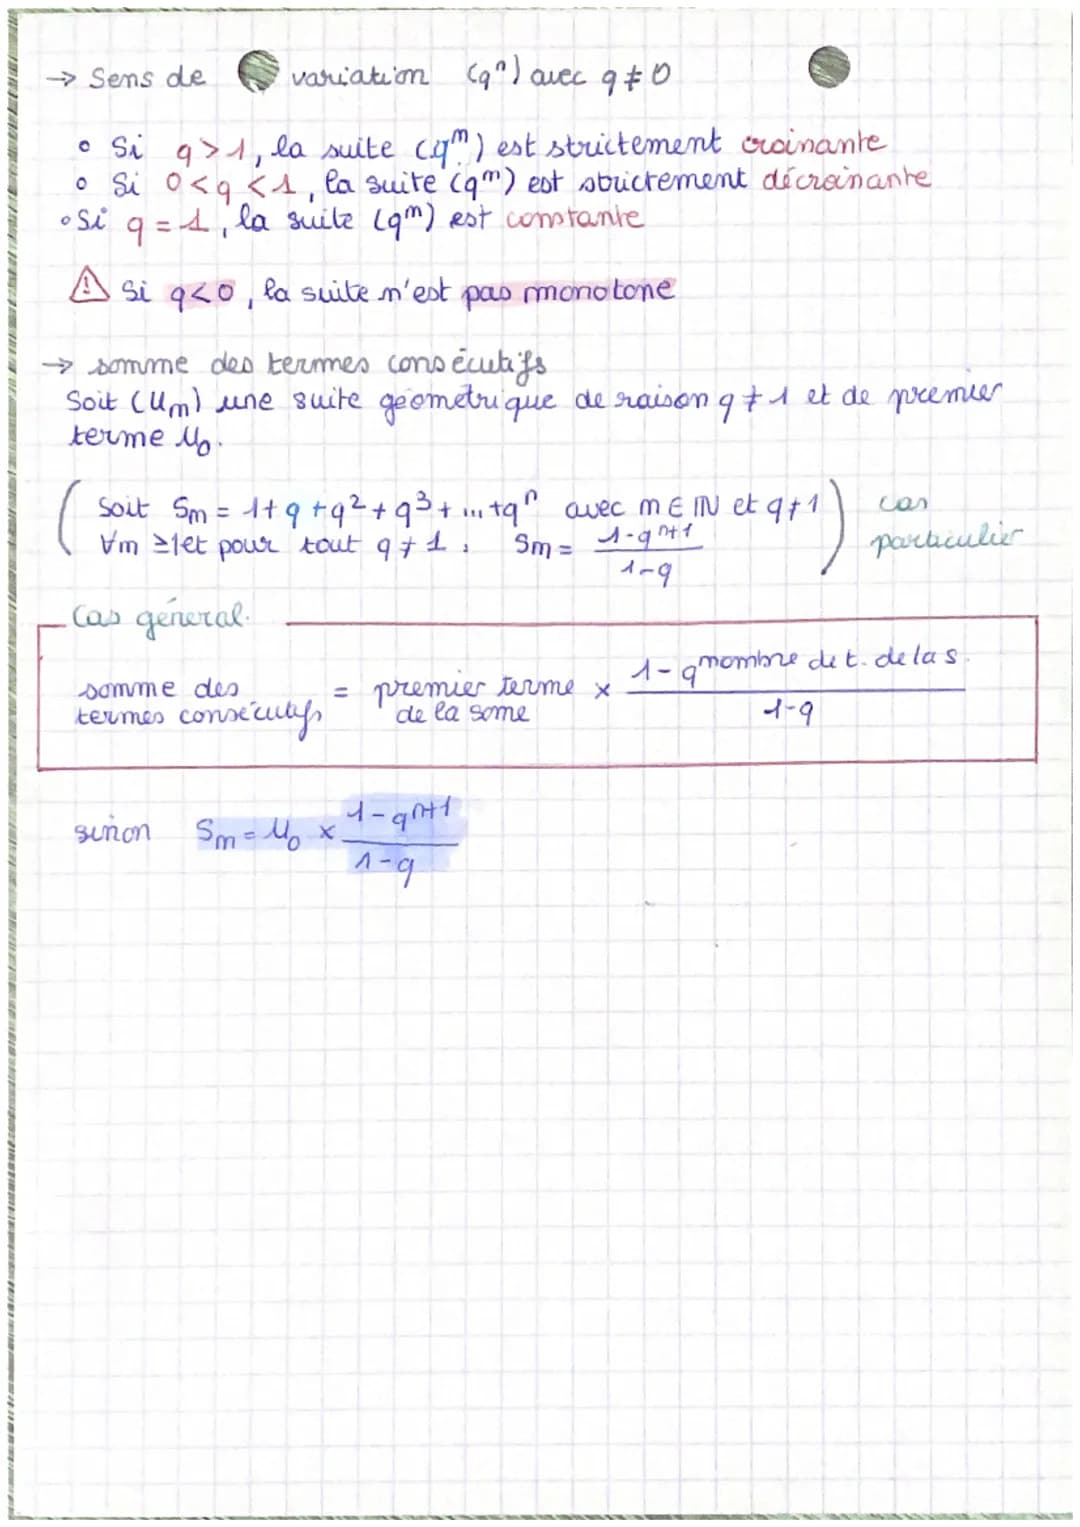 → Sens de variation (qⁿ) avec q ≠ 0
◦ Si q > 1, la suite (qⁿ) est strictement croissante
◦ Si 0 < q < 1, la suite (qⁿ) est strictement décroissante
◦ Si q = 1, la suite (qⁿ) est constante
⚠ Si q < 0, la suite n'est pas monotone
→ somme des termes consécutifs
Soit (Un) une suite géométrique de raison q ≠ 1 et de premier
terme U₀.
( Soit Sn = 1 + q + q² + q³ + ... + qⁿ avec n ∈ ℕ et q ≠ 1 ) cas
∀n ≥ 1 et pour tout q ≠ 1, Sn = (1 - qⁿ⁺¹)/(1 - q) particulier
Cas général.
somme des termes consécutifs = premier terme de la some × (1 - q^nombre de t. de la s.)/(1 - q)
sinon Sn = U₀ × (1 - qⁿ⁺¹)/(1 - q)